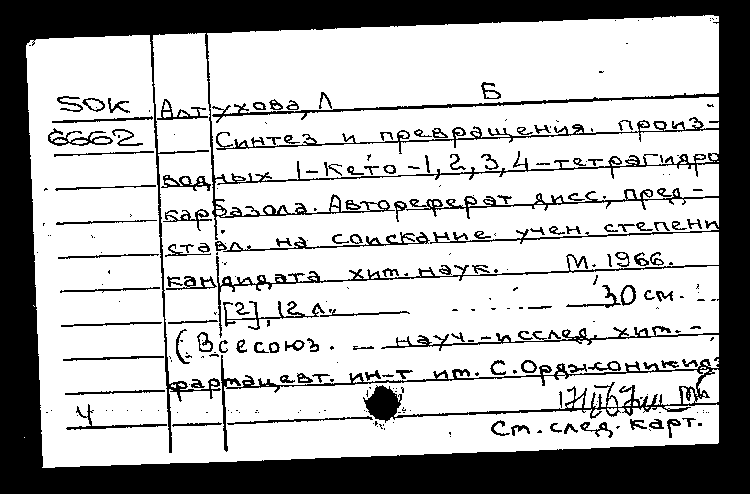 Б
50К Алтухова, Л
6662 Синтез и превращения. произ-
водных 1-Кето-1,2,3,4-тетрагидро
карбазола. Автореферат дисс., пред-
ставл. на соискание учен. степени
кандидата хим. наук. М. 1966.
[2], 12 л. 30 см.
(Всесоюз. науч.-исслед. хим.-
фармацевт. ин-т им. С. Орджоникидз
Ч
См. след. карт.